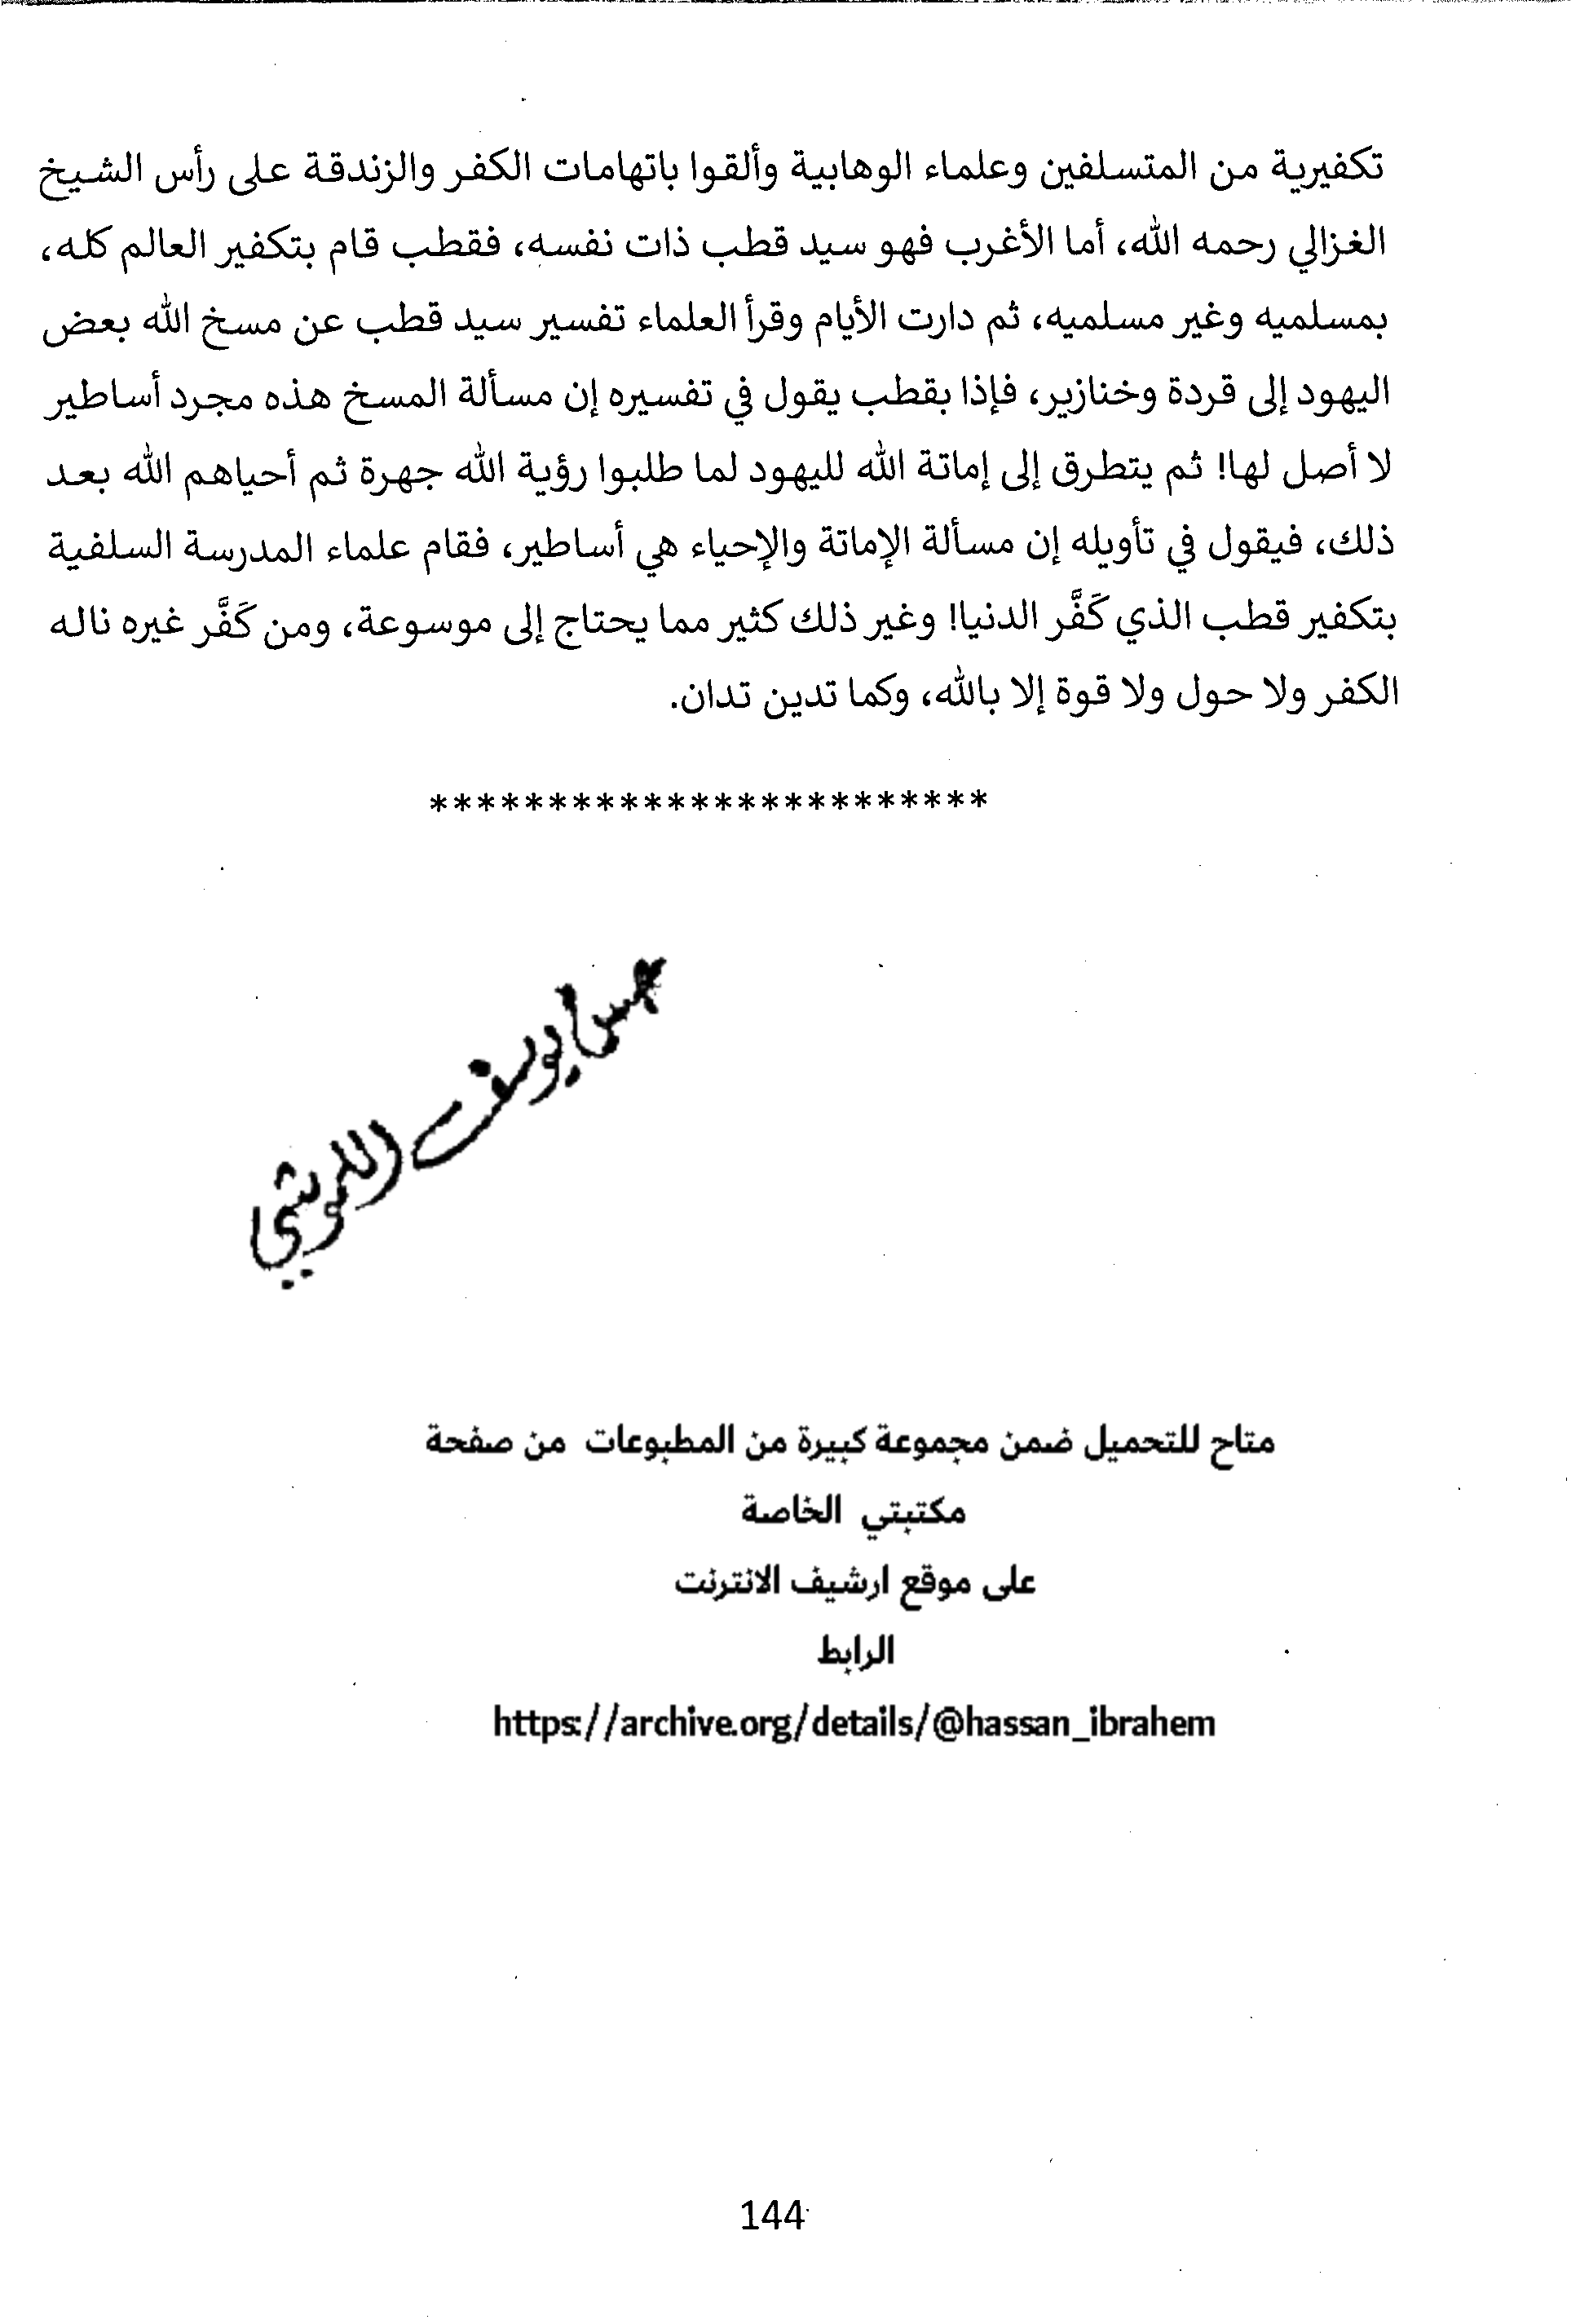 تكفيرية من المتسلفين وعلماء الوهابية وألقوا باتهامات الكفر والزندقة على رأس الشيخ
الغزالي رحمه الله، أما الأغرب فهو سيد قطب ذات نفسه، فقطب قام بتكفير العالم كله،
بمسلميه وغير مسلميه، ثم دارت الأيام وقرأ العلماء تفسير سيد قطب عن مسخ الله بعض
اليهود إلى قردة وخنازير، فإذا بقطب يقول في تفسيره إن مسألة المسخ هذه مجرد أساطير
لا أصل لها! ثم يتطرق إلى إماتة الله لليهود لما طلبوا رؤية الله جهرة ثم أحياهم الله بعد
ذلك، فيقول في تأويله إن مسألة الإماتة والإحياء هي أساطير، فقام علماء المدرسة السلفية
بتكفير قطب الذي كَفَّر الدنيا! وغير ذلك كثير مما يحتاج إلى موسوعة، ومن كَفَّر غيره ناله
الكفر ولا حول ولا قوة إلا بالله، وكما تدين تدان.
************************
يوسف
متاح للتحميل ضمن مجموعة كبيرة من المطبوعات من صفحة
مكتبتي الخاصة
على موقع ارشيف الانترنت
الرابط
https://archive.org/details/@hassan_ibrahem
144